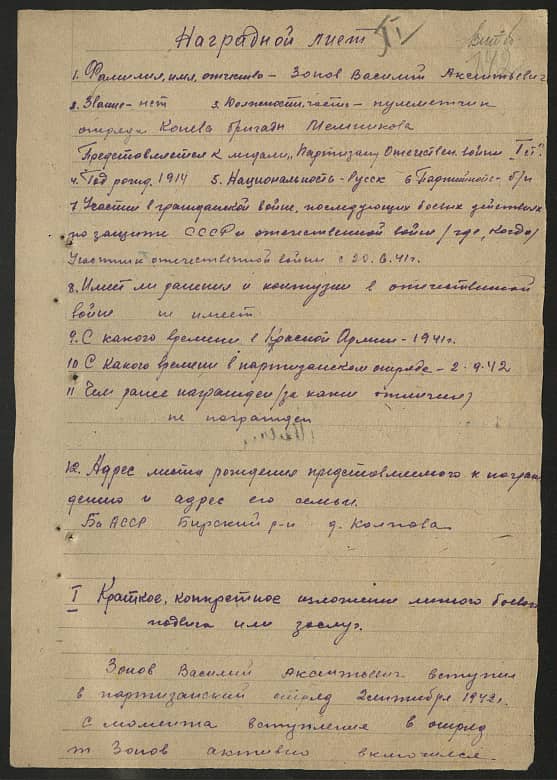 Наградной лист
142
1. Фамилия, имя, отчество – Зонов Василий Аксентьевич
2. Звание – нет 3. Должность, часть – пулеметчик
отряда Конева бригады Мельникова
Представляется к медали „Партизану Отечествен. войны I ст."
4. Год рожд. 1914 5. Национальность – русск 6. Партийность – б/п
7. Участие в гражданской войне, последующих боевых действиях
по защите СССР и отечественной войне /где, когда/
Участник отечественной войны с 20.6.41г.
8. Имеет ли ранения и контузии в отечественной
войне не имеет
9. С какого времени в Красной Армии – 1941г.
10. С какого времени в партизанском отряде – 2.9.42
11 Чем ранее награжден /за какие отличия/
не награжден
12. Адрес места рождения представляемого к награж
дению и адрес его семьи.
Баш АССР Бирский р-н д. Колпова
I Краткое, конкретное изложение личного боевого
подвига или заслуг.
Зонов Василий Аксентьевич вступил
в партизанский отряд 2 сентября 1942г.
С момента вступления в отряд
т Зонов активно включился